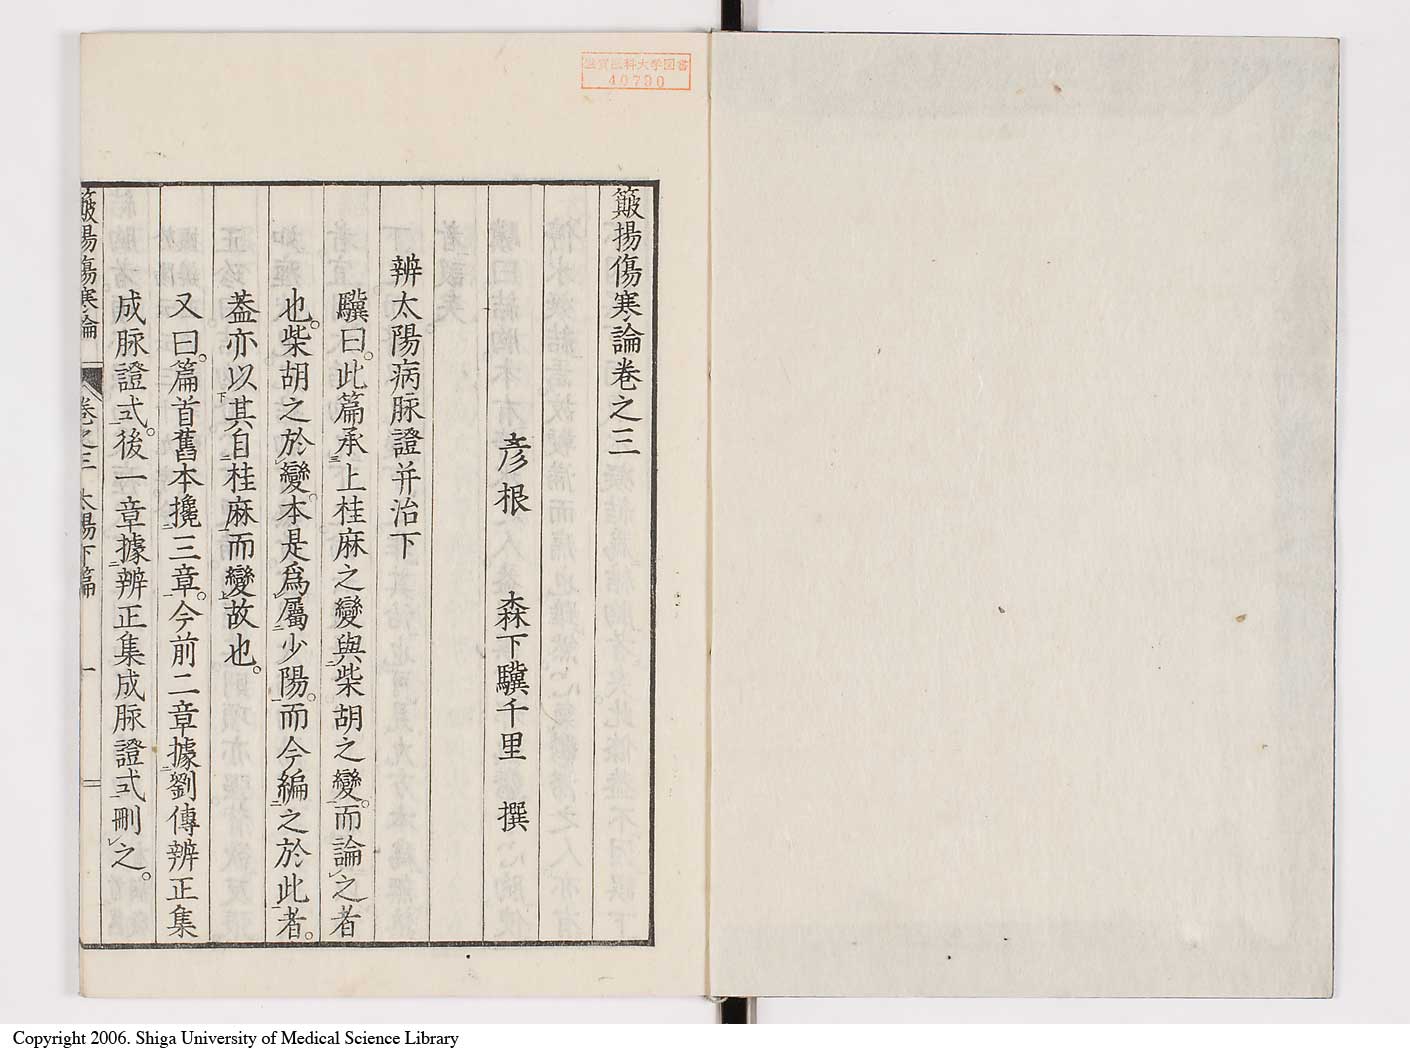 簸揚傷寒論卷之三
彦根 森下驥千里 撰
辨太陽病脉證并治下
驥曰。此篇承上桂麻之變與柴胡之變。而論之者
也。柴胡之於變。本是爲屬少陽。而今編之於此者。
葢亦以其自桂麻而變故也。
又曰。篇首舊本攙三章。今前二章據劉傳辨正集
成脉證式。後一章據辨正集成脉證式刪之。
簸揚傷寒論 卷之三 太陽下篇 一
滋賀医科大学図書
40790
Copyright 2006. Shiga University of Medical Science Library